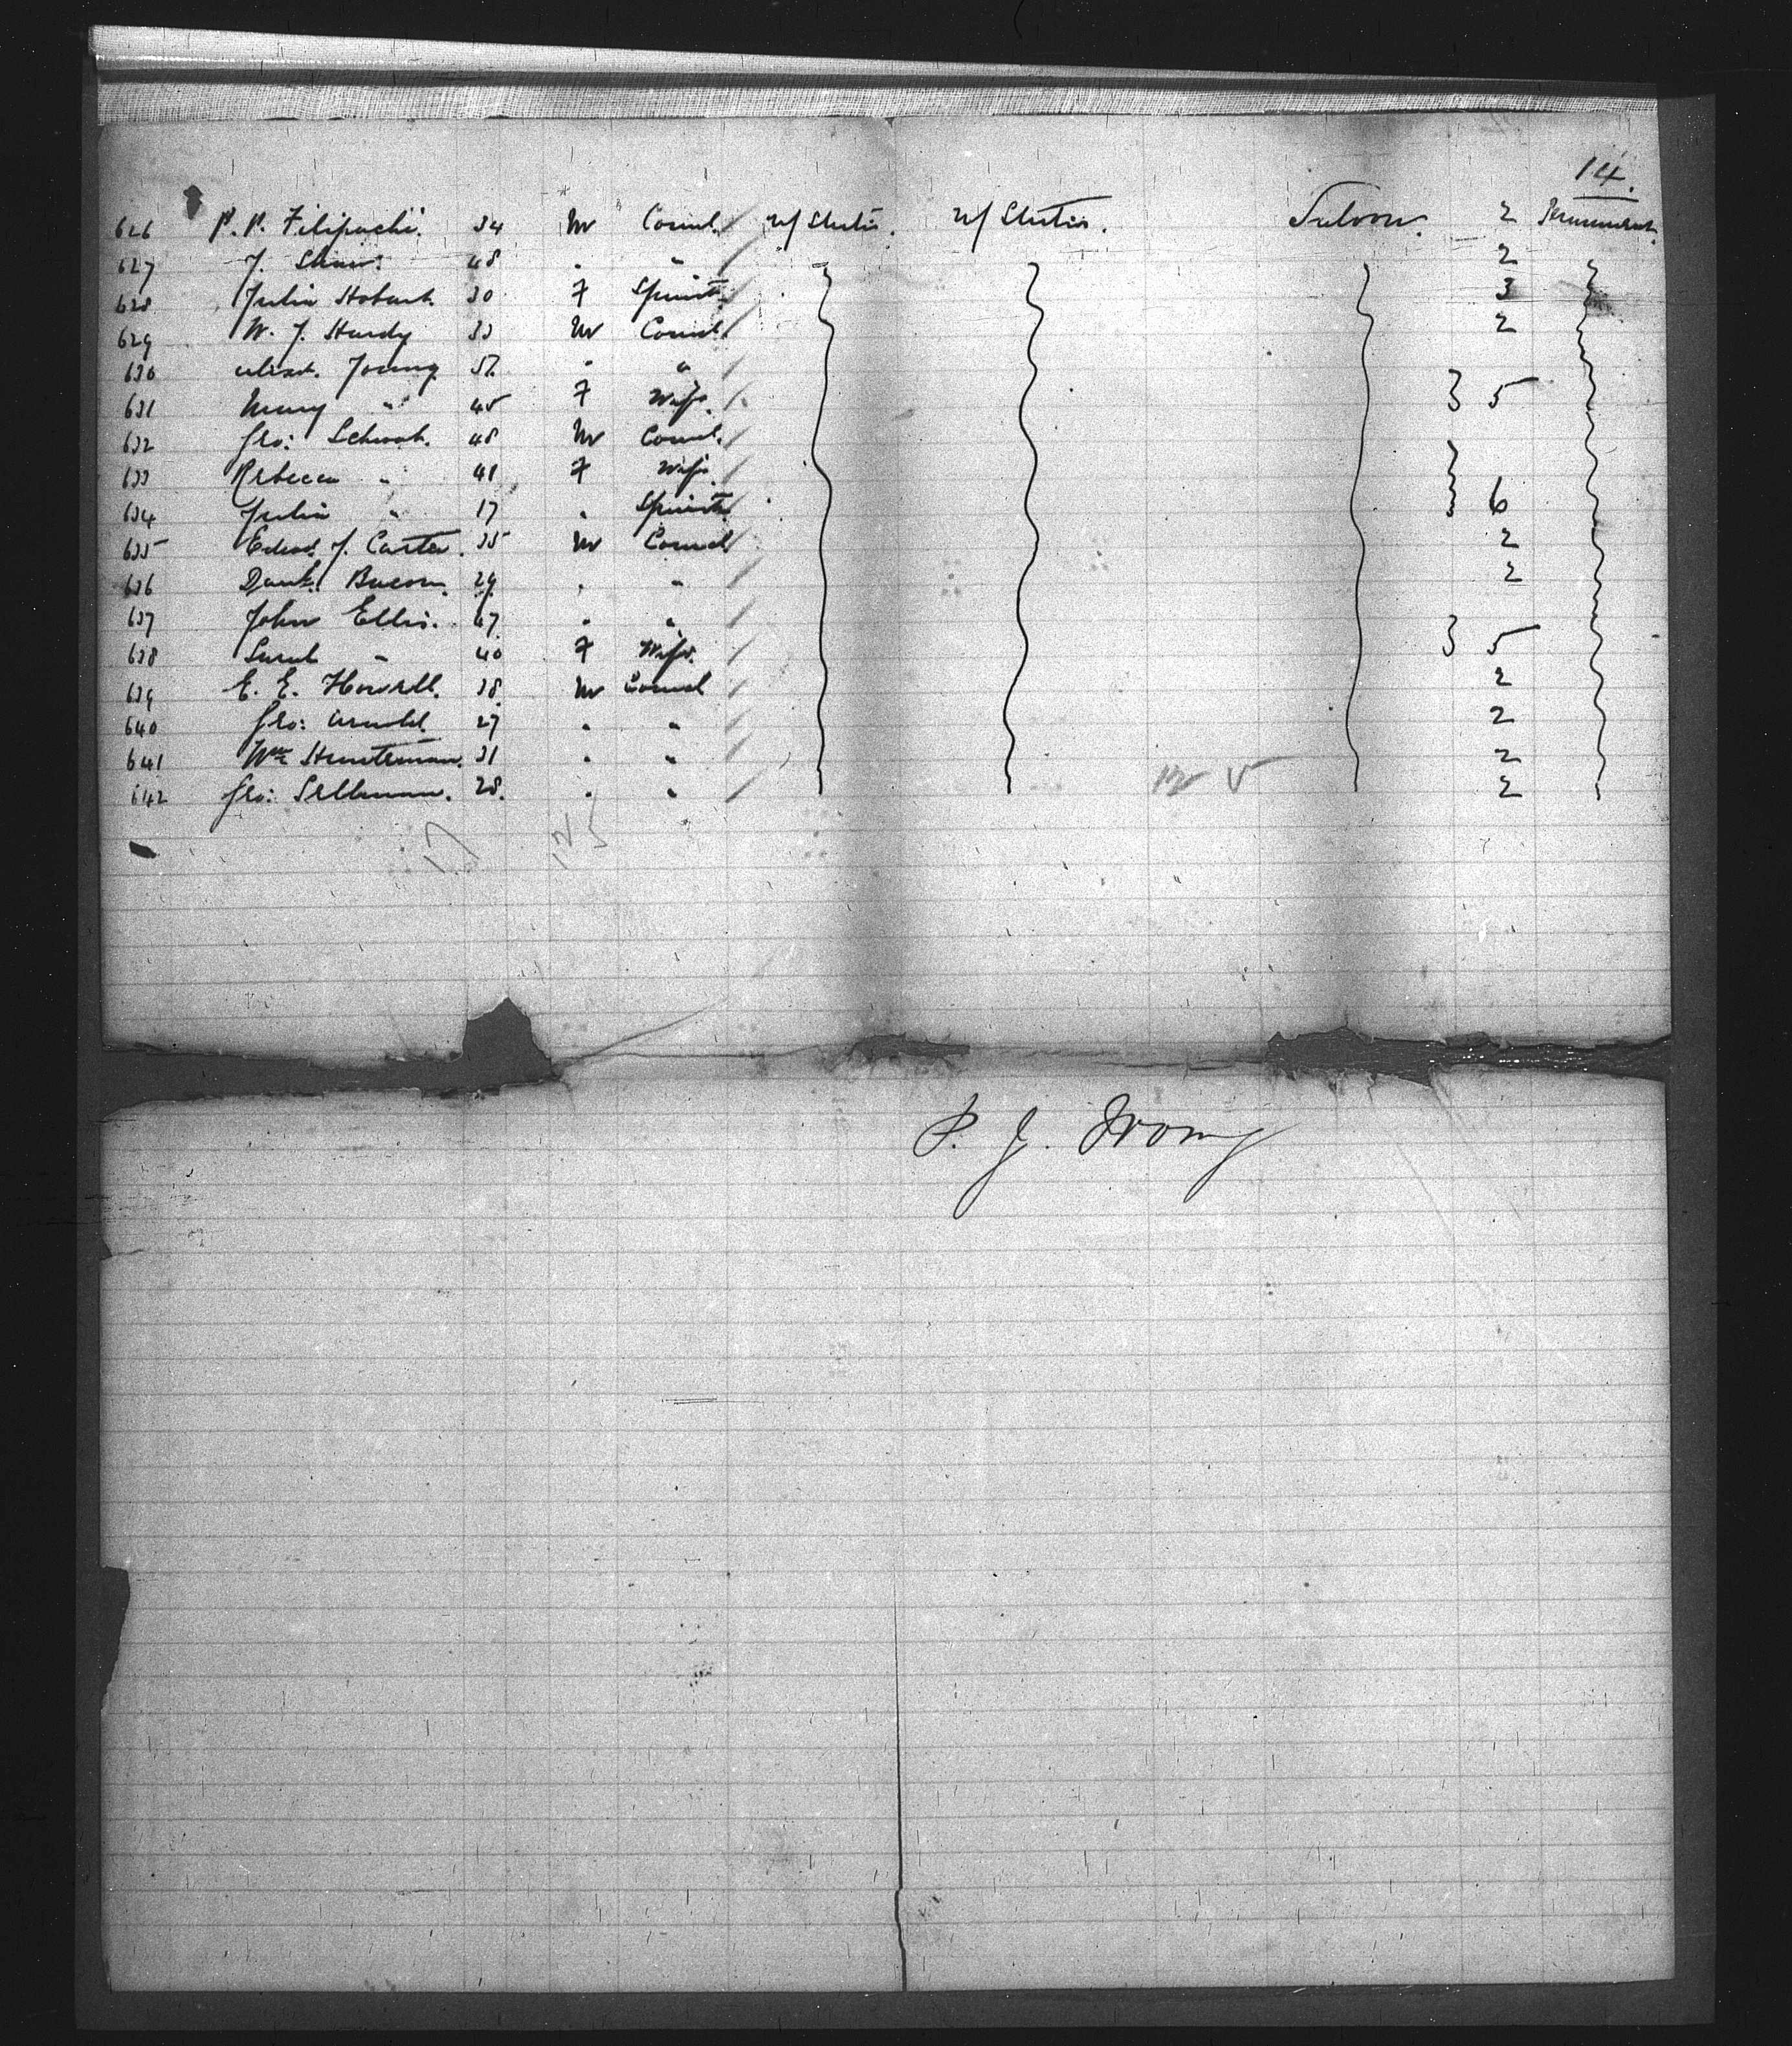 14.
626 P. P. Filipachi. 34 M Coml. U/States. U/States. Saloon. 2 Permanent.
627 J. Shaw. 48 " " 2
628 Julia Hobart. 30 F Spinst. 3
629 W. J. Hardy 33 M Coml. 2
630 Alexr. Young 57. " "
631 Mary " 45 F Wife. } 5
632 Geo: Schwab. 48 M Coml.
633 Rebecca " 41 F Wife.
634 Julia " 17 " Spinst. } 6
635 Edwd. J. Carter. 35 M Coml. 2
636 Danl. Bacon. 29. " " 2
637 John Ellis. 47. " "
638 Sarah " 40 F Wife. } 5
639 E. E. Howell. 38. M Coml 2
640 Geo: Arnold. 27 " " 2
641 Wm Hunteman. 31 " " 2
642 Geo: Sellman. 28. " " 2
12 5
17 12/5
P. J. Irving